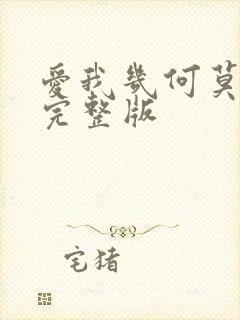 愛我幾何莫
完整版
宅猪